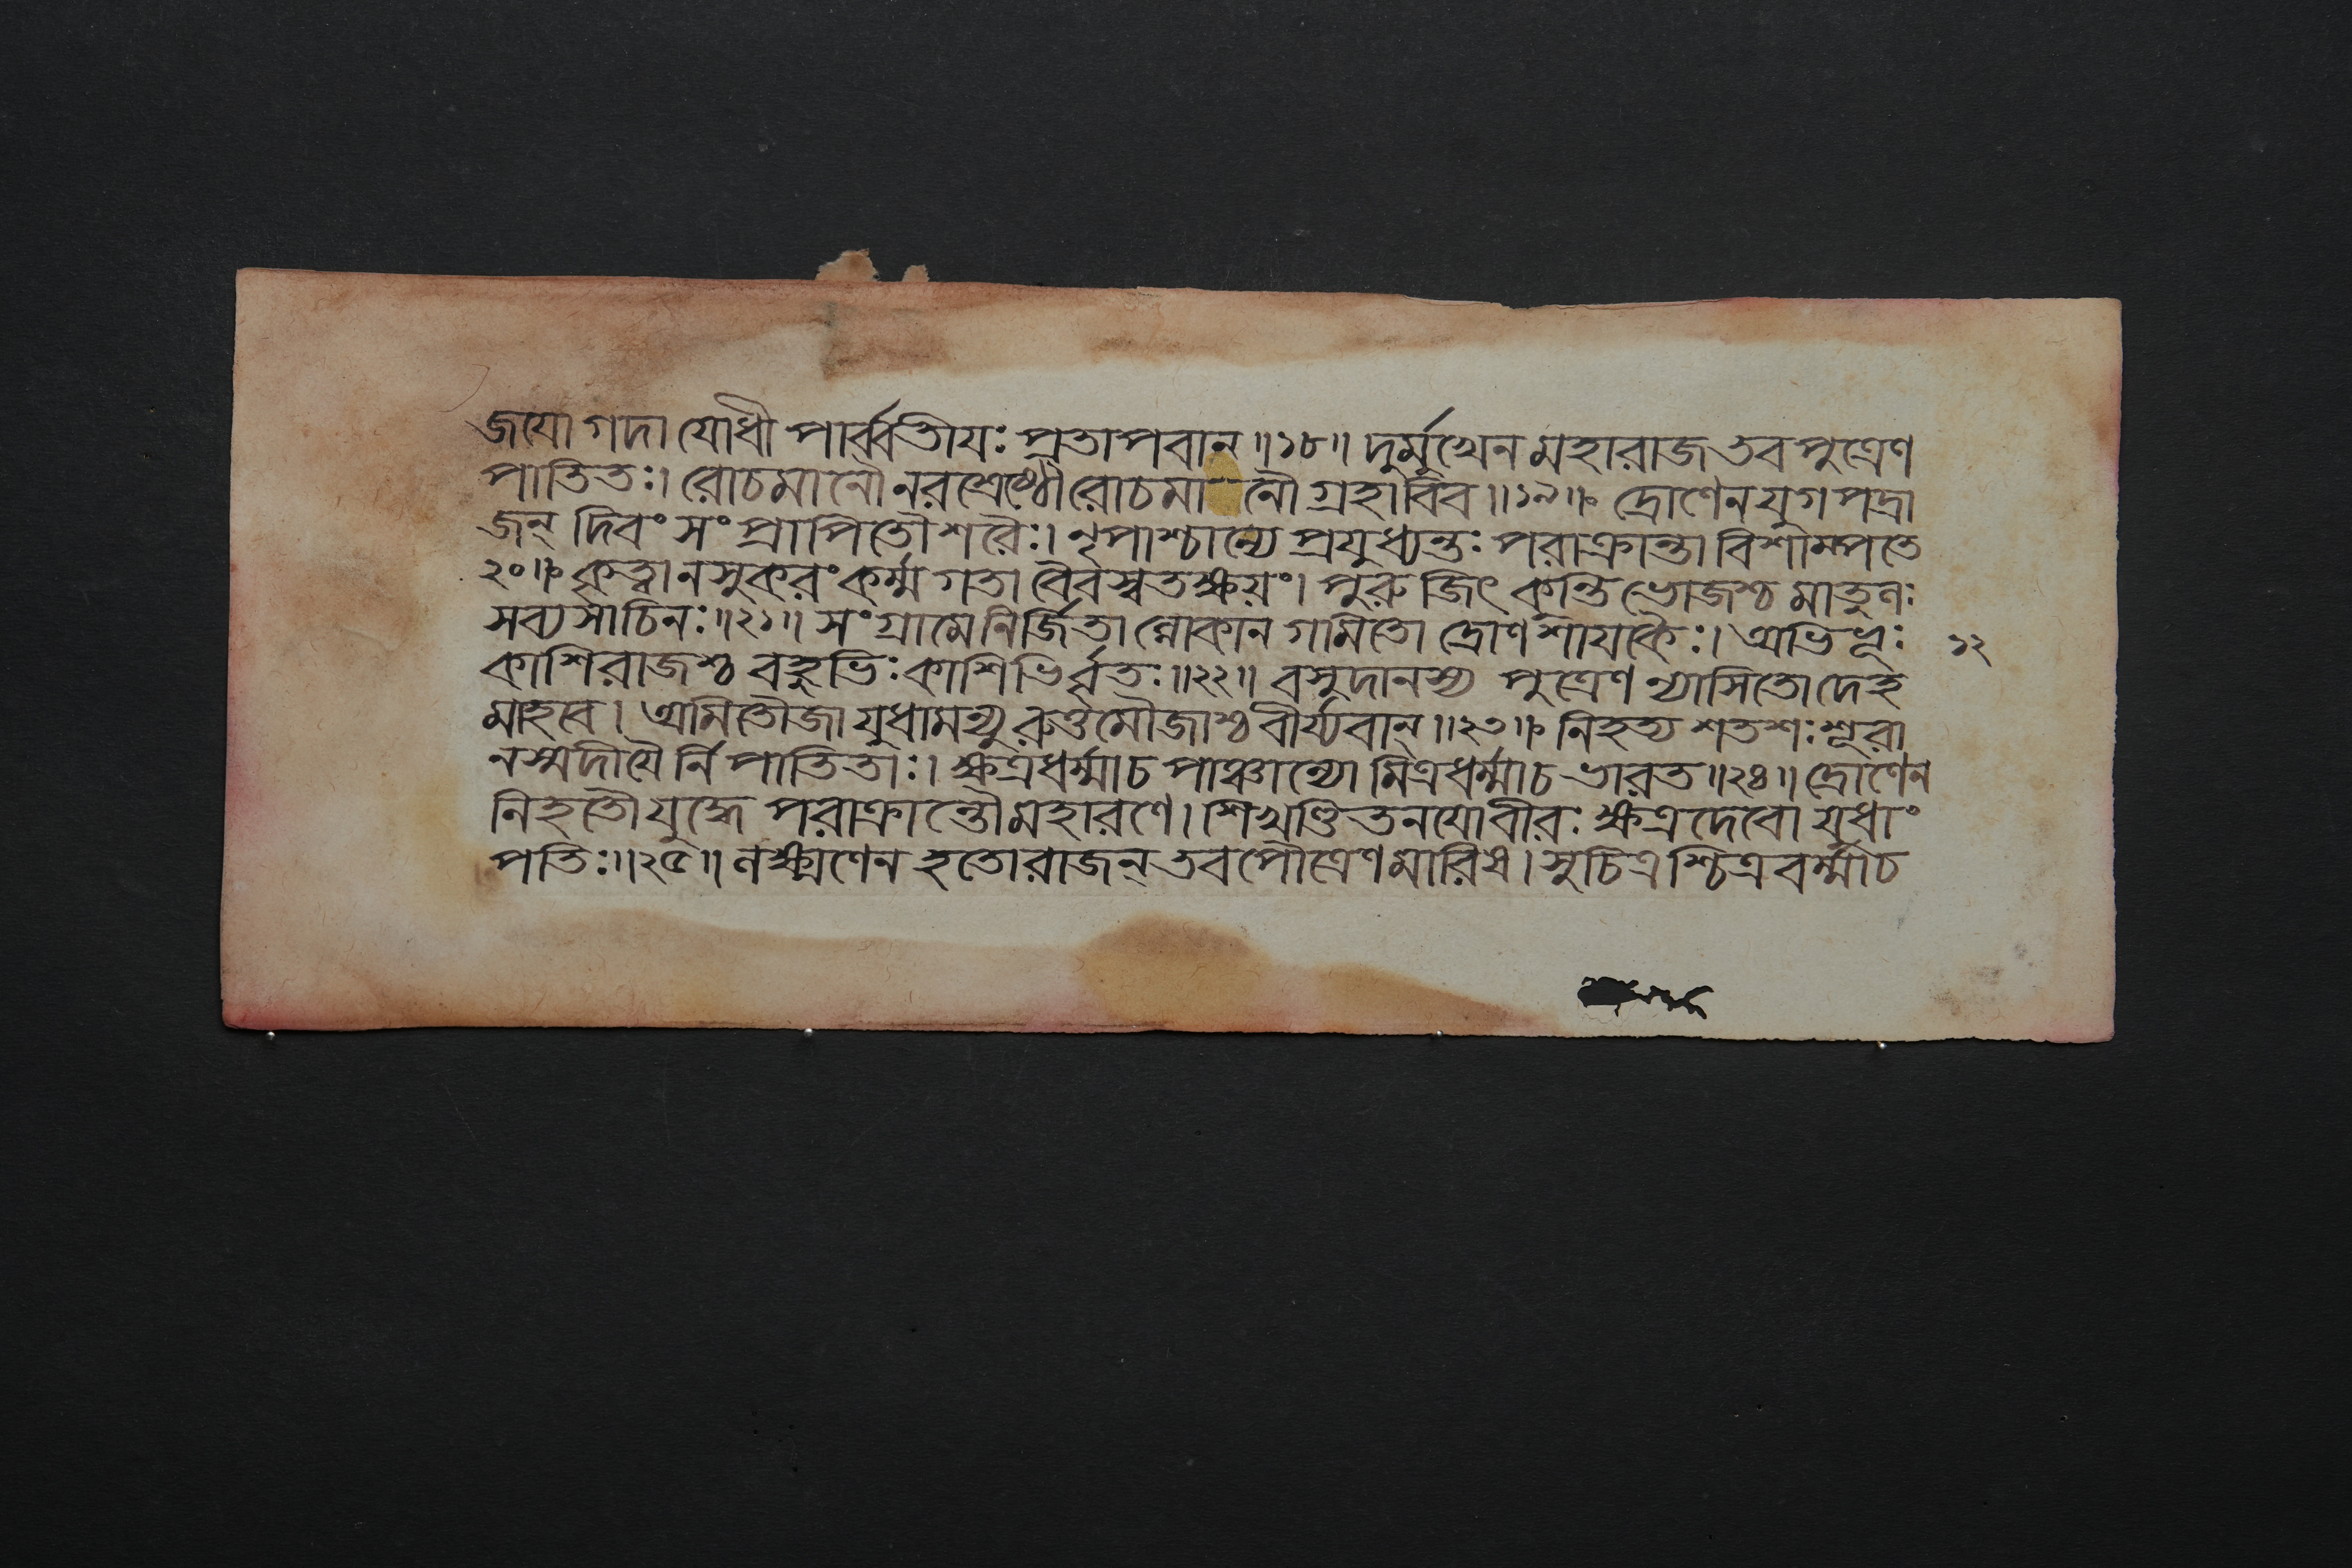 জযো গদা যোধী পার্ব্বতীযঃ প্রতাপবান ॥১৮॥ দুর্মুখেন মহারাজ তব পুত্রেণ
পাতিতঃ। রোচমানৌ নরশ্রেষ্ঠৌ রোচমানৌ গ্রহাবিব ॥১৯॥ দ্রোণেন যুগপদ্রা
জন্ দিবং সংপ্রাপিতৌ শরৈঃ। নৃপাশ্চান্যে প্রযুধ্যন্তঃ পরাক্রান্তা বিশাম্পতে
২০॥ কৃত্বা নসুকরং কর্ম্ম গতা বৈবস্বতক্ষয়ং। পুরুজিৎ কন্তিভোজশ্চ মাতুলঃ
সব্যসাচিনঃ॥২১॥ সংগ্রামে নির্জিতাল্লোকান গমিতো দ্রোণশায়কৈঃ। অভিভূঃ ১২
কাশিরাজশ্চ বহুভিঃ কাশিভির্ব্বৃতঃ॥২২॥ বসুদানস্য পুত্রেণ ন্যাসিতো দেহ
মাহবে। অমিতৌজা যুধামন্যুরুত্তমৌজাশ্চ বীর্য্যবান্॥২৩॥ নিহত্য শতশঃ শূরা
নস্মদীযৈর্নিপাতিতাঃ। ক্ষত্রধর্ম্মাচ পাঞ্চাল্যো মিত্রধর্ম্মাচ ভারত॥২৪॥ দ্রোণেন
নিহতৌ যুদ্ধে পরাক্রান্তৌ মহারণে। শিখণ্ডিতনযো বীরঃ ক্ষত্রদেবো যুধাং
পতিঃ॥২৫॥ লক্ষ্মণেন হতো রাজন্ তব পৌত্রেণ মারিষ। সুচিত্রশ্চিত্রবর্ম্মাচ